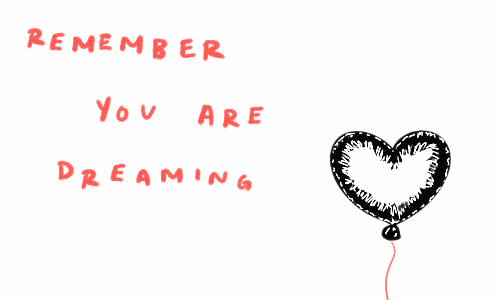 REMEMBER
YOU ARE
DREAMING